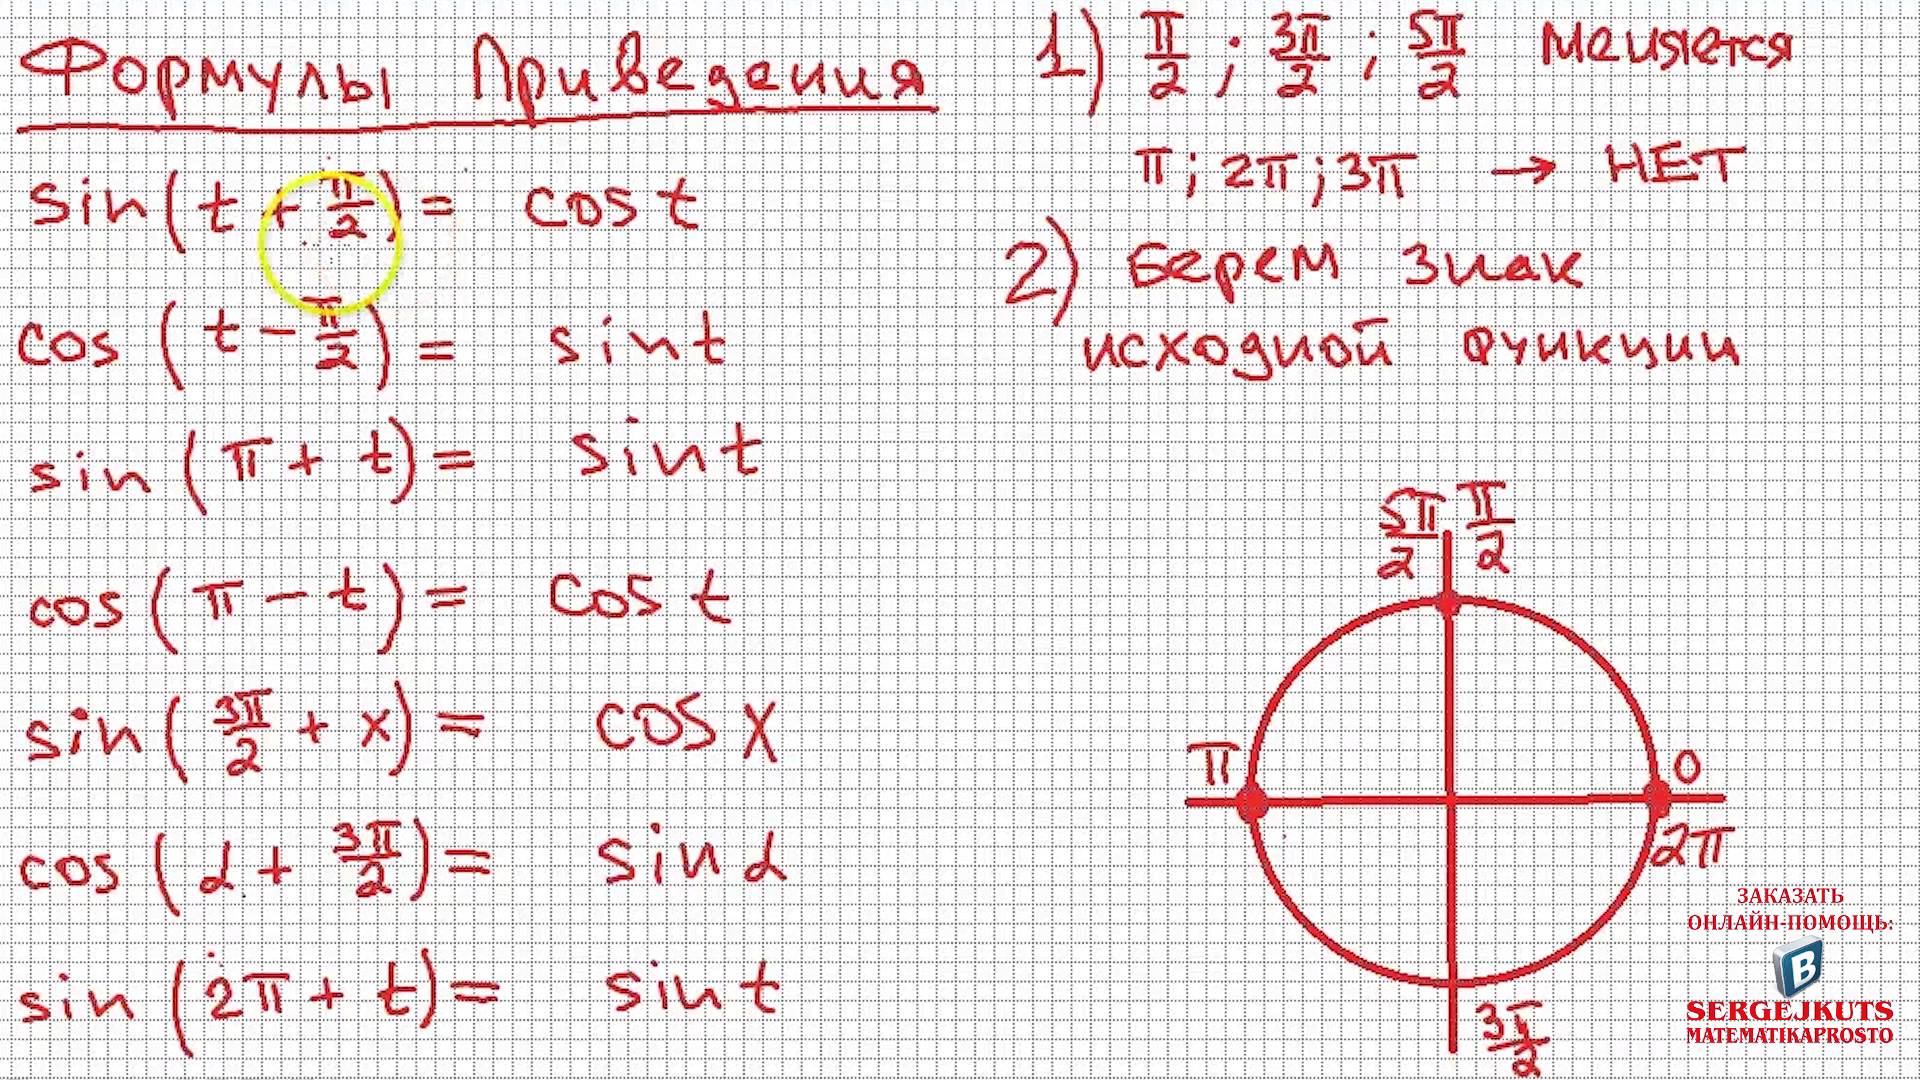 Формулы Приведения
sin(t + π/2) = cos t
cos(t − π/2) = sin t
sin(π + t) = sin t
cos(π − t) = cos t
sin(3π/2 + x) = cos x
cos(α + 3π/2) = sin α
sin(2π + t) = sin t
1) π/2; 3π/2; 5π/2 меняется
π; 2π; 3π → НЕТ
2) Берем знак
исходной функции
5π/2 π/2
π 0
2π
3π/2
ЗАКАЗАТЬ
ОНЛАЙН-ПОМОЩЬ:
B
SERGEJKUTS
MATEMATIKAPROSTO